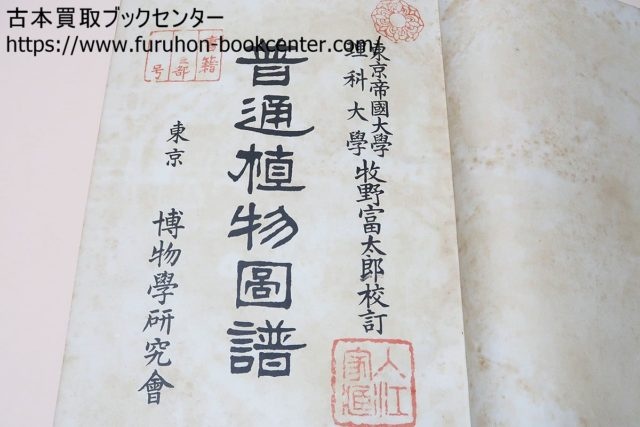 古本買取ブックセンター
https://www.furuhon-bookcenter.com/
東京帝國大學
理科大學
牧野富太郎校訂
普通植物圖譜
東京
博物學研究會
入江
家
書籍
部
号